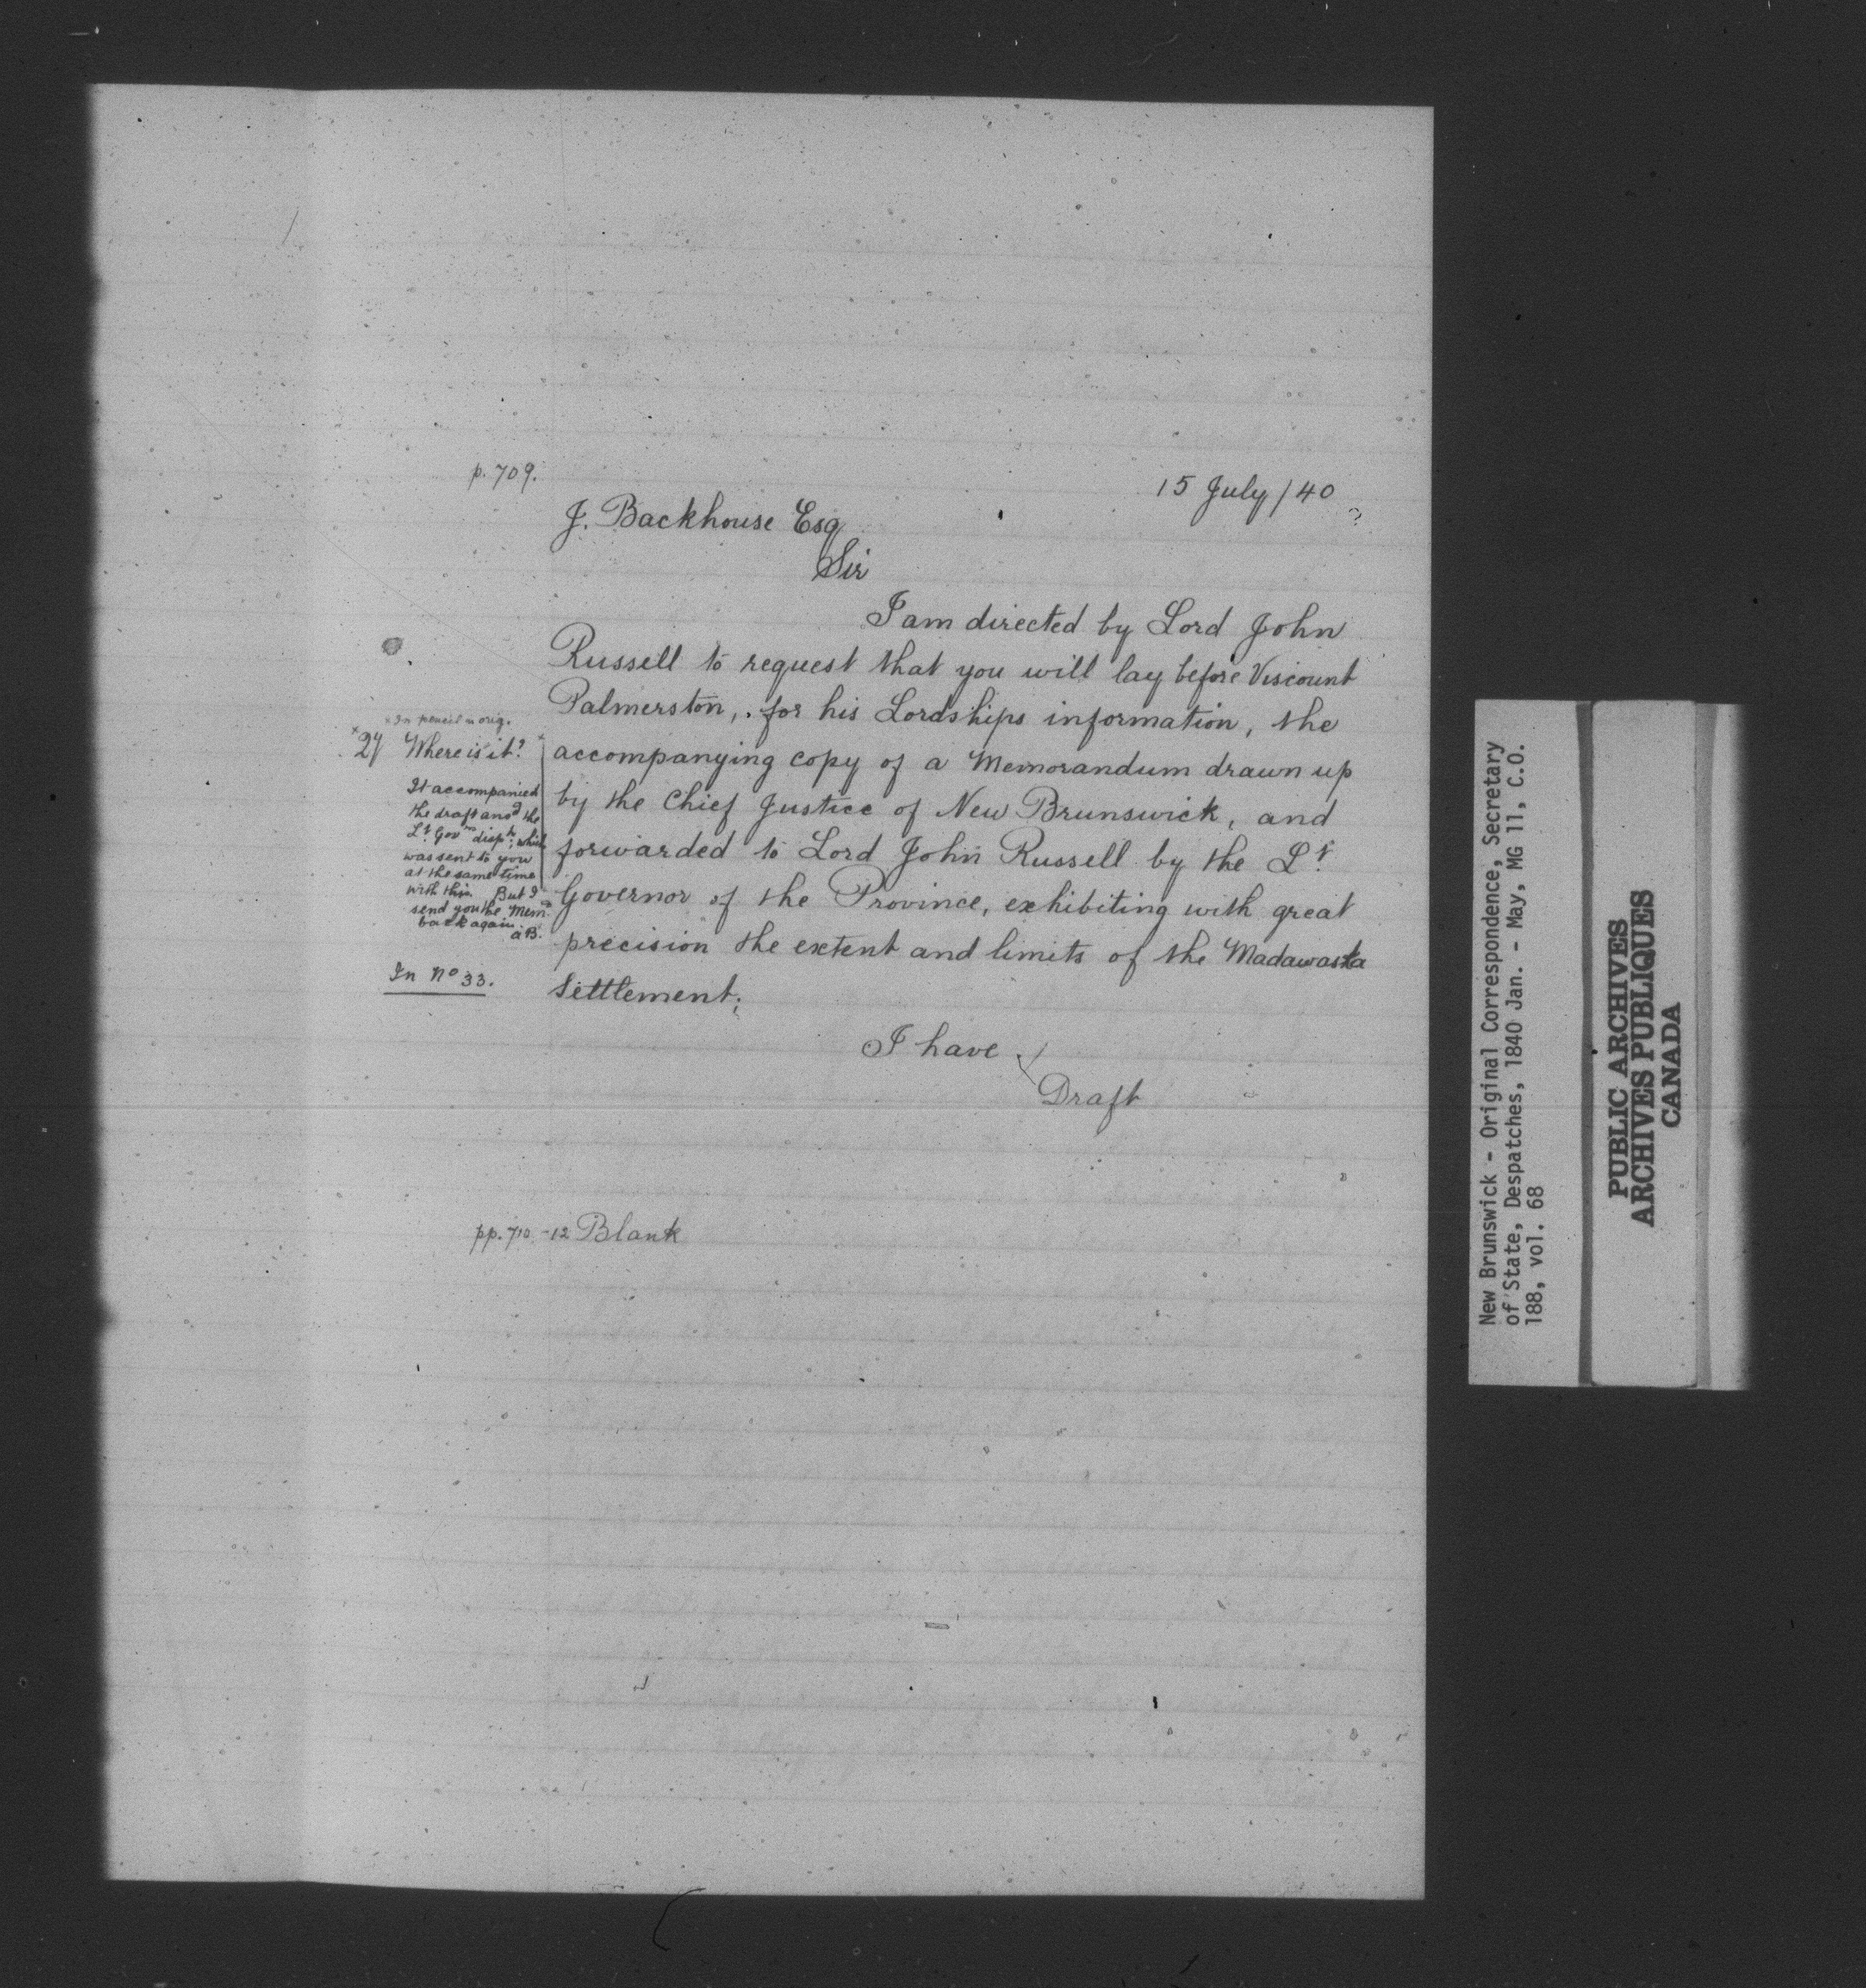 p. 709.
15 July / 40
J. Backhouse Esq
Sir
I am directed by Lord John
Russell to request that you will lay before Viscount
Palmerston, for his Lordships information, the
accompanying copy of a Memorandum drawn up
by the Chief Justice of New Brunswick, and
forwarded to Lord John Russell by the Lt.
Governor of the Province, exhibiting with great
precision the extent and limits of the Madawaska
Settlement;
I have
Draft
x In pencil in orig.
Where is it? x
It accompanied
the draft and the
Lt. Govrs disph; which
was sent to you
at the same time
with this. But I
send you the Mem.
back again.
aB.
In No 33.
pp. 710-12 Blank
New Brunswick - Original Correspondence, Secretary
of State, Despatches, 1840 Jan. - May, MG 11, C.O.
188, vol. 68
PUBLIC ARCHIVES
ARCHIVES PUBLIQUES
CANADA